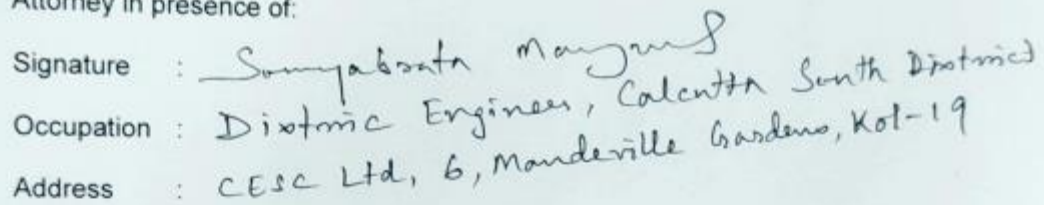 Attorney in presence of:
Signature : Somyabrata
Occupation : District Engineer, Calcutta South District
Address : CESC Ltd, 6, Mandeville Gardens, Kol-19